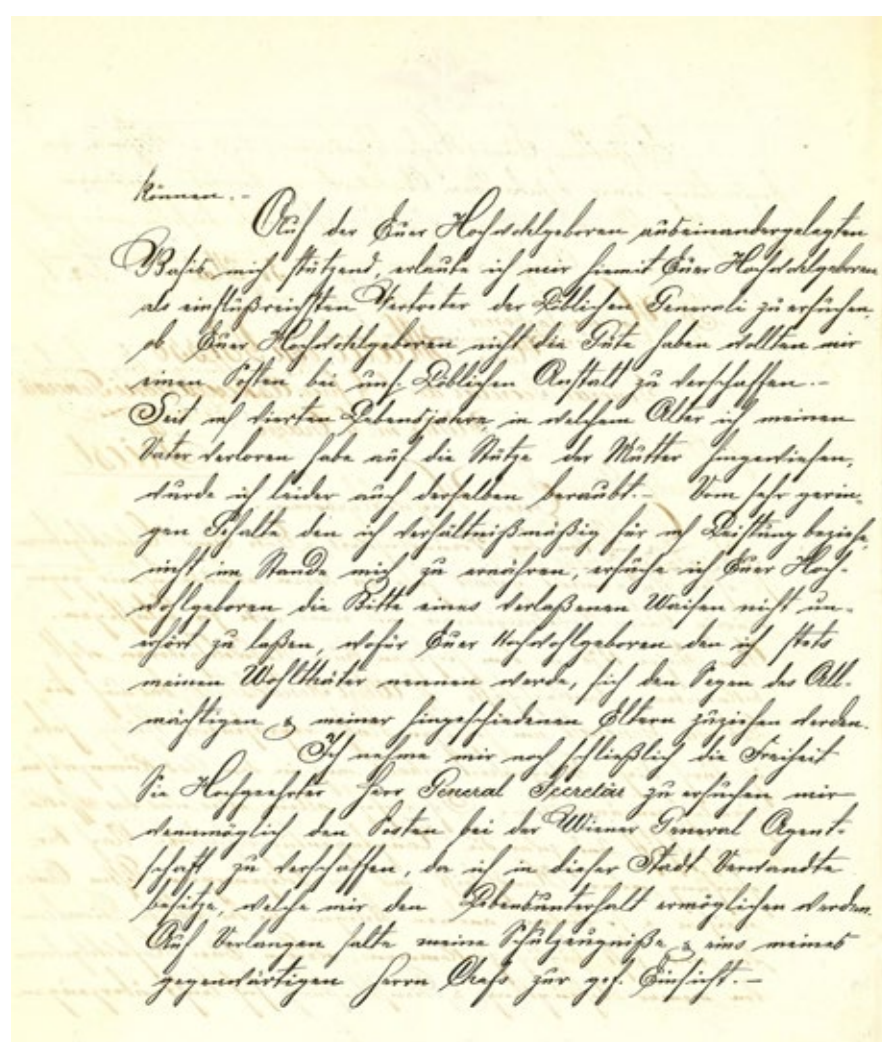 können. –
Auf der Euer Hochwohlgeboren auseinandergelegten
Basis mich stützend, erlaube ich mir hiemit Euer Hochwohlgeboren
als einflußreichsten Vertreter der Löblichen Generali zu ersuchen,
ob Euer Hochwohlgeboren nicht die Güte haben wollten mir
einen Posten bei Löblichen Anstalt zu verschaffen. –
Seit vierten Lebensjahre, in welchem Alter ich meinen
Vater verloren habe auf die Stütze der Mutter hingewiesen,
wurde ich leider auch derselben beraubt. – Vom sehr gerin-
gen Gehalte den ich verhältnißmäßig für Leistung beziehe,
nicht im Stande mich zu ernähren, ersuche ich Euer Hoch-
wohlgeboren die Bitte eines verlaßenen Waisen nicht un-
erhört zu laßen, wofür Euer Hochwohlgeboren den ich stets
meinen Wohlthäter nennen werde, sich den Segen des All-
mächtigen & meiner hingeschiedenen Eltern zuziehen werden.
Ich nehme mir noch schließlich die Freiheit
Sie Hochgeehrter Herr General Secretär zu ersuchen mir
wenmöglich den Posten bei der Wiener General Agent-
schaft zu verschaffen, da ich in dieser Stadt Verwandte
besitze, welche mir den Lebensunterhalt ermöglichen werden.
Auf Verlangen halte meine Schulzeugniße & eins meines
gegenwärtigen Herrn Chefs zur gef. Einsicht. –